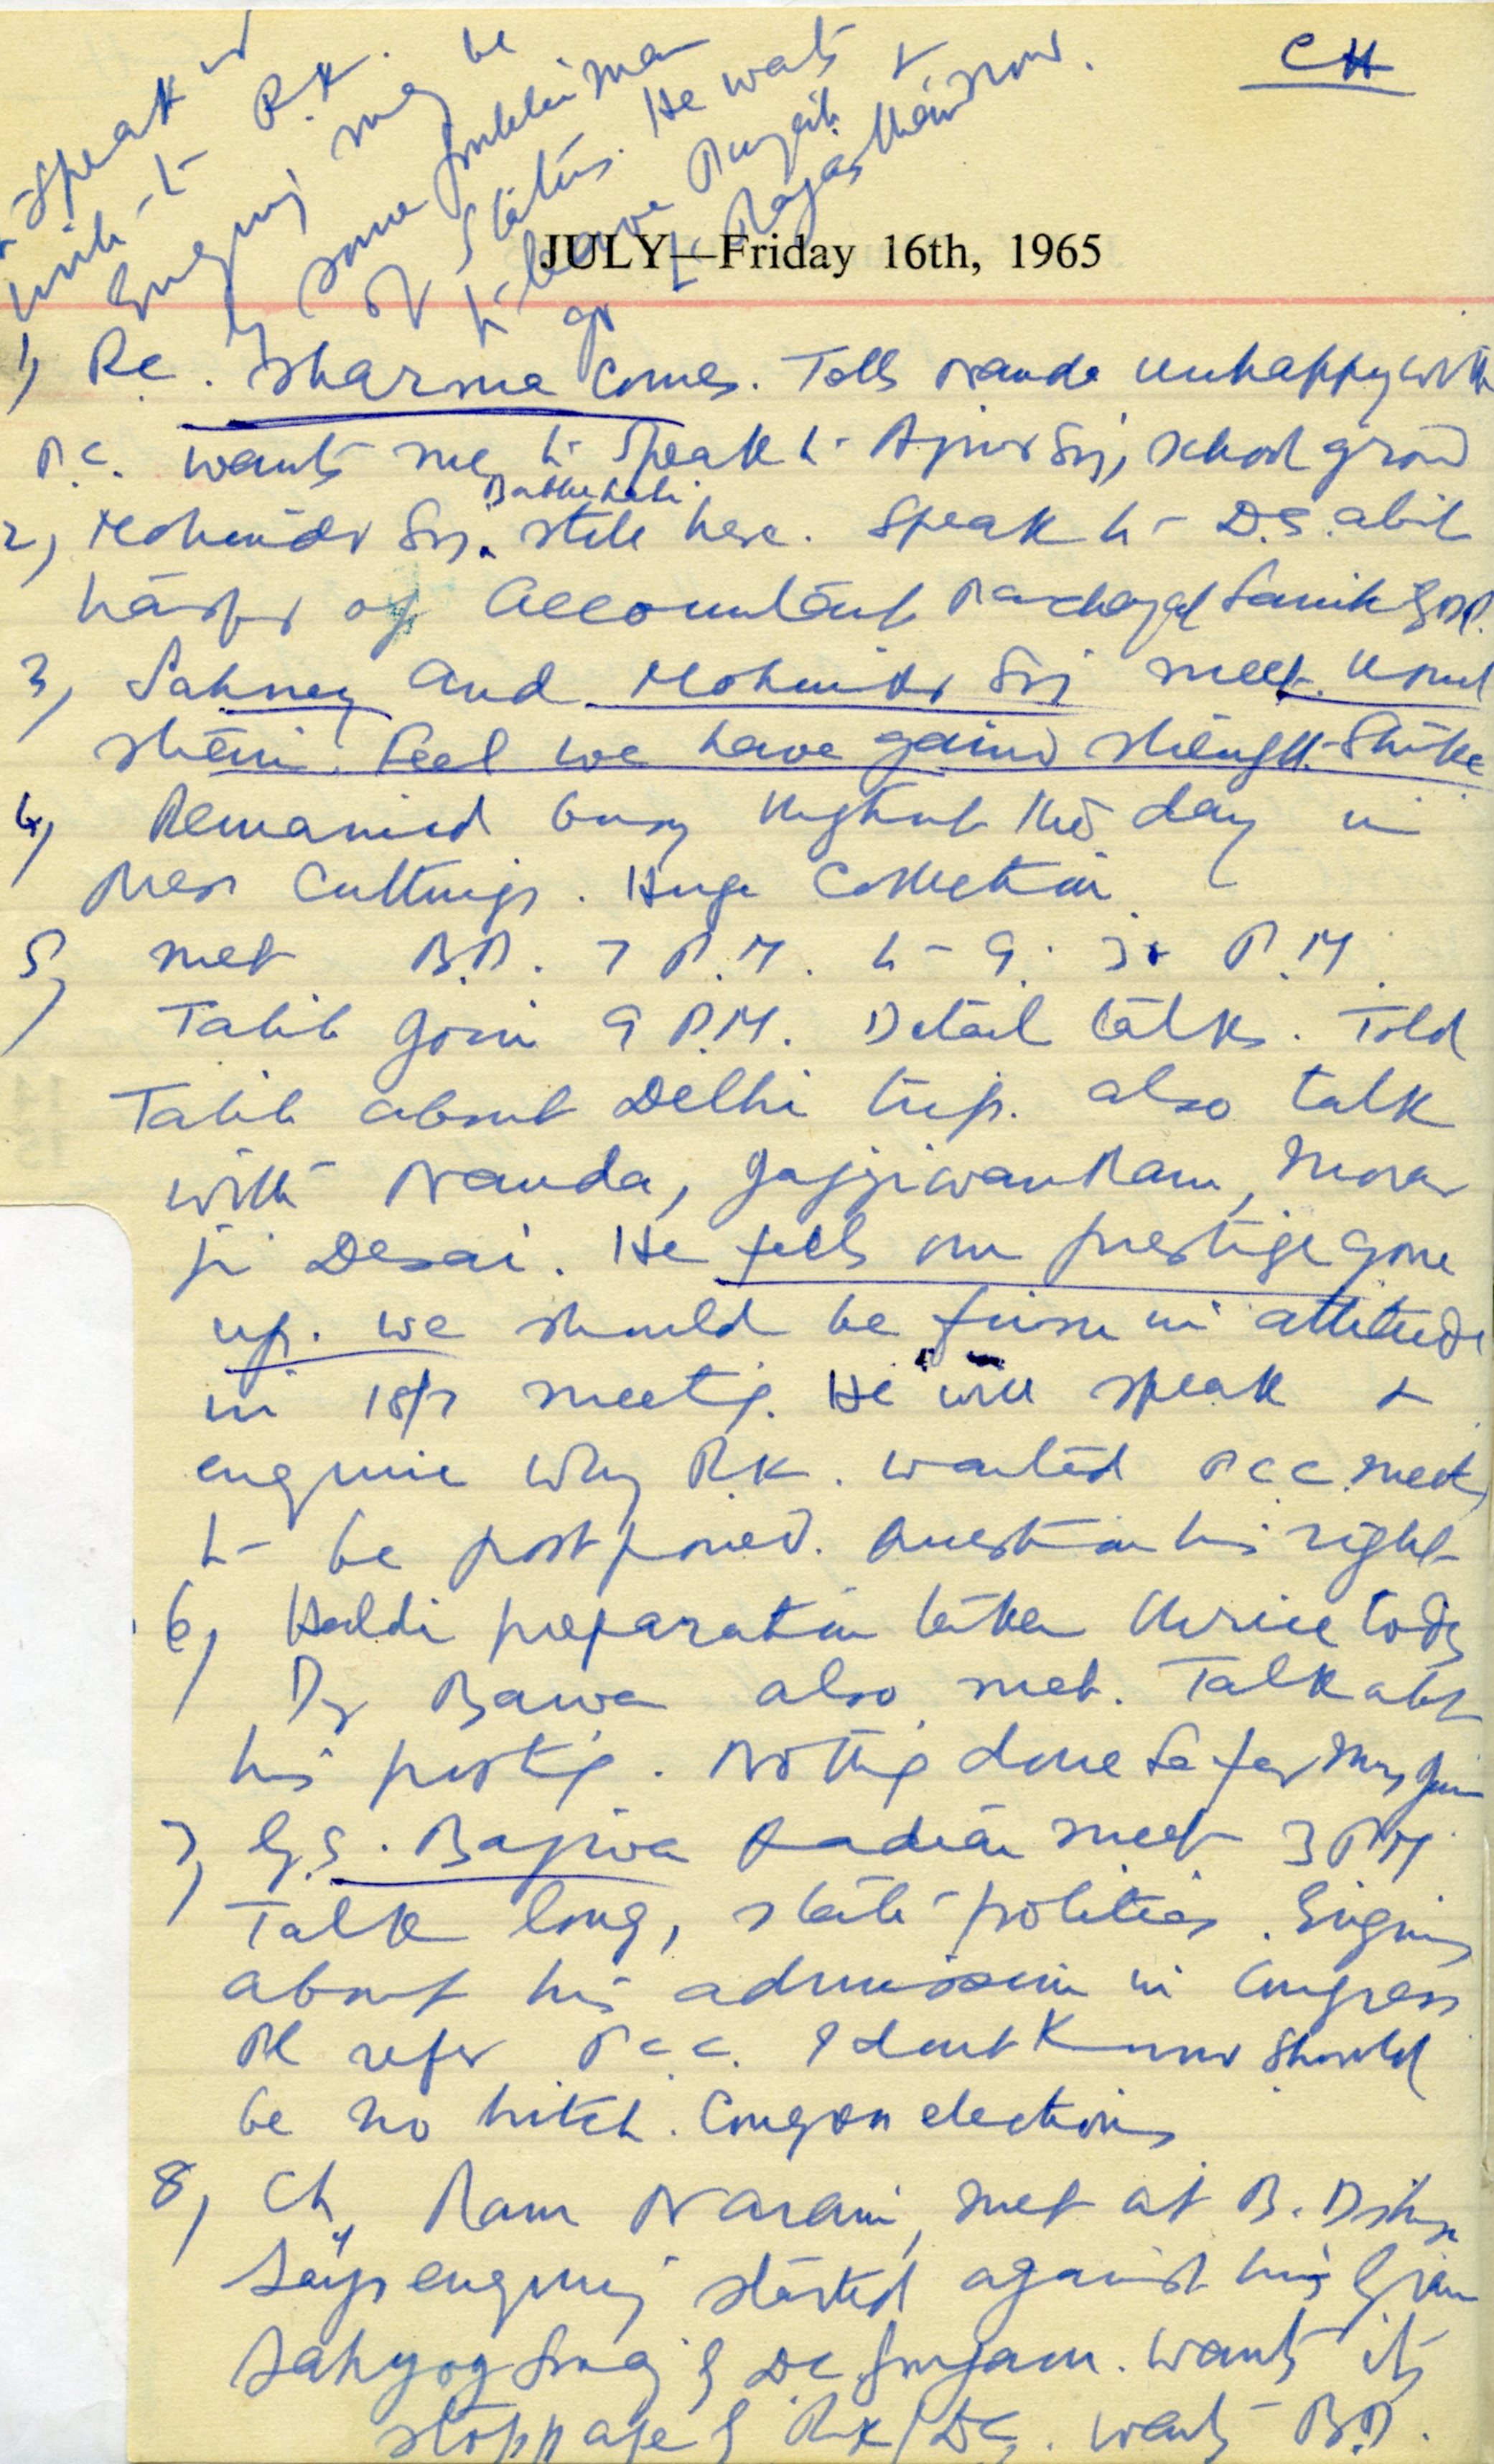 CH
speak
write to R.K.
Enquiry may be
by some gentleman
of status. He wants
to leave Punjab &
go to Rajasthan now.
JULY—Friday 16th, 1965
1) Re. Sharma comes. Tells Nanda unhappy with
P.C. wants me to speak to school
2) Mohinder Sin. still here. Speak to D.S. abt
of Accountant
3) Sahney and Mohinder Sin meet.
Feel we have gained strength. Strike
4) Remained busy thrght the day in
Press Cuttings. Huge Collection.
5) met B.D. 7 P.M. to 9.30 P.M.
Talib join 9 P.M. Detail talks. Told
Talib about Delhi trip. also talk
with Nanda, Jagjiwan Ram, Morar
ji Desai. He feels our prestige gone
up. we should be firm in attitude
in 18/7 meetig. He will speak &
enquire why R.K. wanted P.C.C. meetg
to be postponed. Question his right
6) Haldi preparation taken thrice today
Dr Bawa also met. Talk abt
his postig. Nothig done so far
7) G.S. Bajwa Kadian meet 3 PM.
Talk long, state politics. Enquiry
about his admission in Congress
Pl refer P.C.C. I dont know should
be no hitch. Congress elections
8) Ch, Ram Narain, met at B.
Says enquiry started against his
Sahyog by DC Gurgaon. wants its
stoppage by RK/DC. wants B.D.